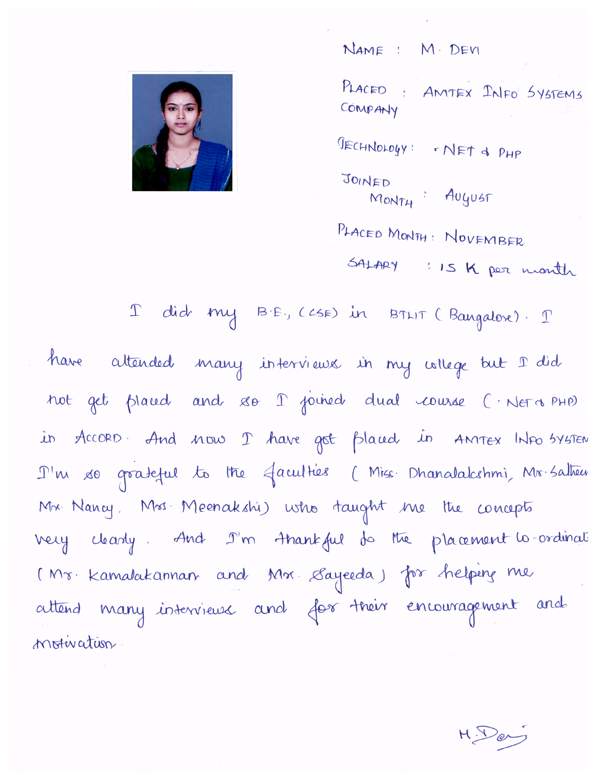 NAME : M. DEVI
PLACED : AMTEX INFO SYSTEMS
COMPANY
TECHNOLOGY : .NET & PHP
JOINED
MONTH : AUGUST
PLACED MONTH : NOVEMBER
SALARY : 15 K per month
I did my B.E., (CSE) in BTLIT (Bangalore). I
have attended many interviews in my college but I did
not get placed and so I joined dual course (.NET & PHP)
in ACCORD. And now I have got placed in AMTEX INFO SYSTEM
I'm so grateful to the faculties (Miss. Dhanalakshmi, Mr. Sathees
Mr. Nancy, Mrs. Meenakshi) who taught me the concepts
very clearly. And I'm thankful to the placement co-ordinat
(Mr. Kamalakannan and Mrs. Sayeeda) for helping me
attend many interviews and for their encouragement and
motivation.
M. Devi